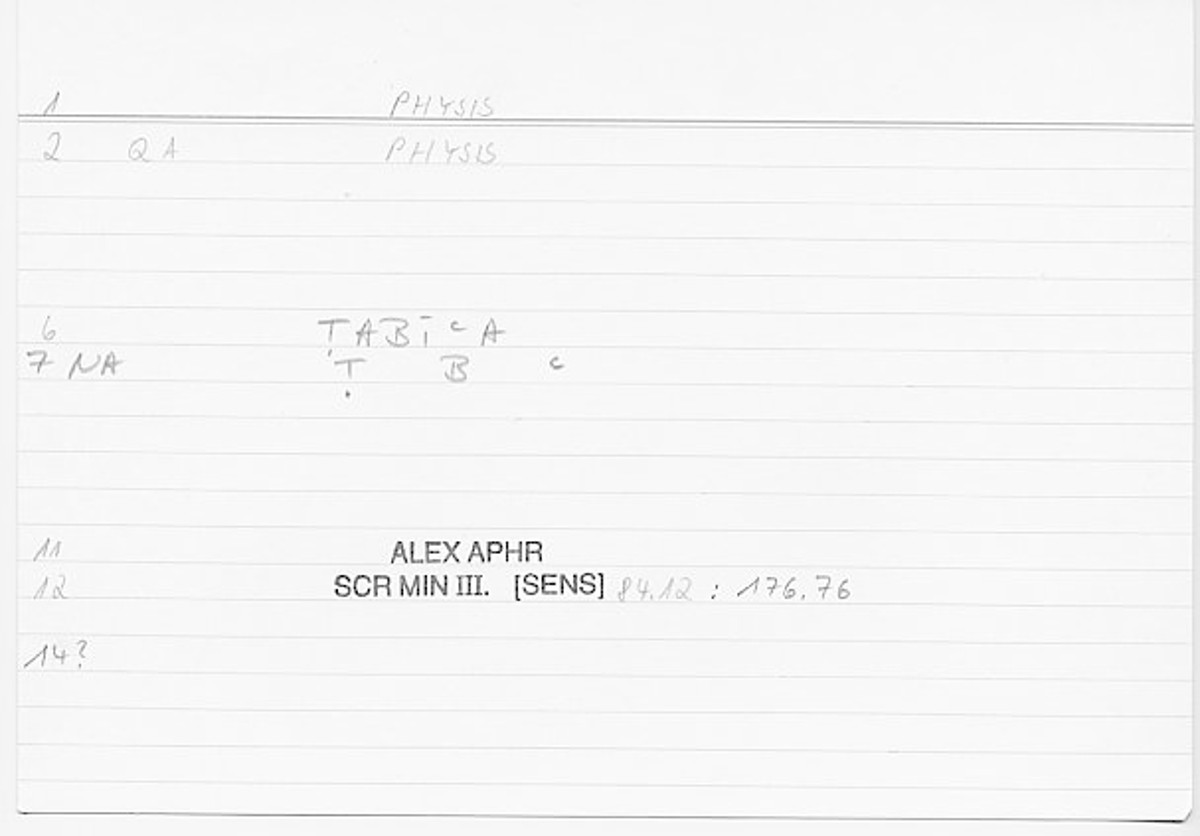 1 PHYSIS
2 QA PHYSIS
6 ṬABĪcA
7 NA Ṭ B c
11 ALEX APHR
12 SCR MIN III. [SENS] 84.12 : 176.76
14?